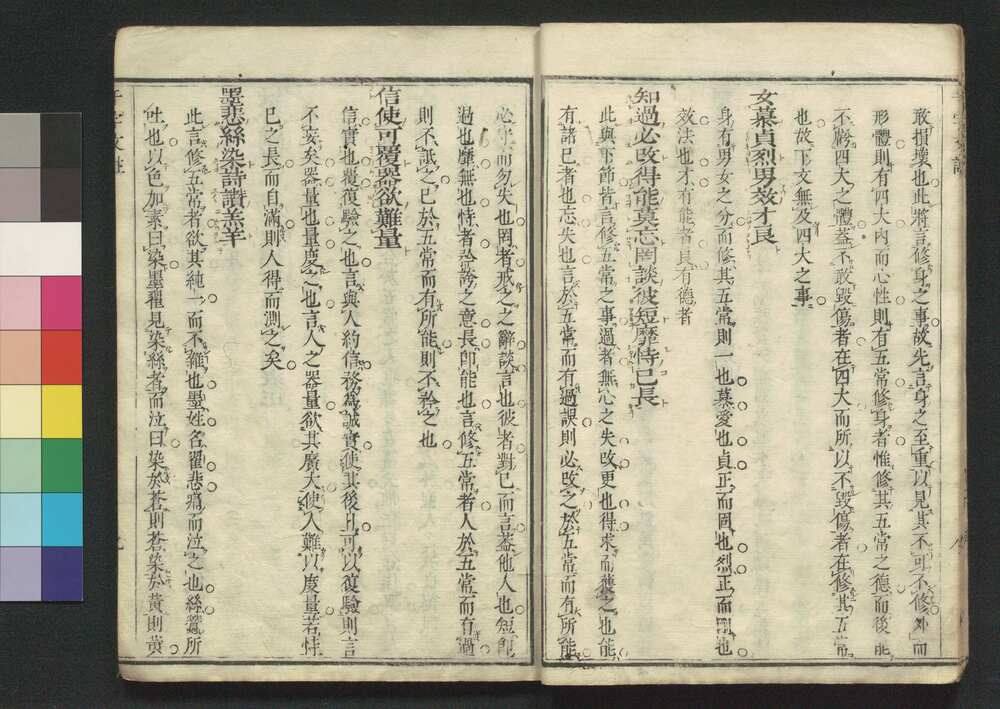 敢損壞也此將言修身之事故先言身之至重以見其不可不修外而
形體則有四大內而心性則有五常修身者惟修其五常之德而後能
不虧四大之體蓋不敢毀傷者在四大而所以不毀傷者在修其五常
也故下文無及四大之事
女慕貞烈男效才良
身有男女之分而修其五常則一也慕愛也貞正而固也烈正而剛也
效法也才有能者良有德者
知過必改得能莫忘罔談彼短靡恃己長
此與下節皆言修五常之事過者無心之失改更也得求而獲之也能
有諸己者也忘失也言於五常而有過誤則必改之於五常而有所能
必守而勿失也罔者戒之之辭談言也彼者對己而言蓋他人也短即
過也靡無也恃者矜誇之意長即能也言修五常者人於五常而有過
則不詆之己於五常而有所能則不矜之也
信使可覆器欲難量
信實也覆復驗之也言與人約信務為誠實使其後日可以復驗則言
不妄矣器量也量度之也言人之器量欲其廣大使人難以度量若恃
己之長而自滿則人得而測之矣
墨悲絲染詩讚羔羊
此言修五常者欲其純一而不雜也墨姓名翟悲痛而泣之也絲蠶所
吐也以色加素曰染墨翟見染絲者而泣曰染於蒼則蒼染於黃則黃